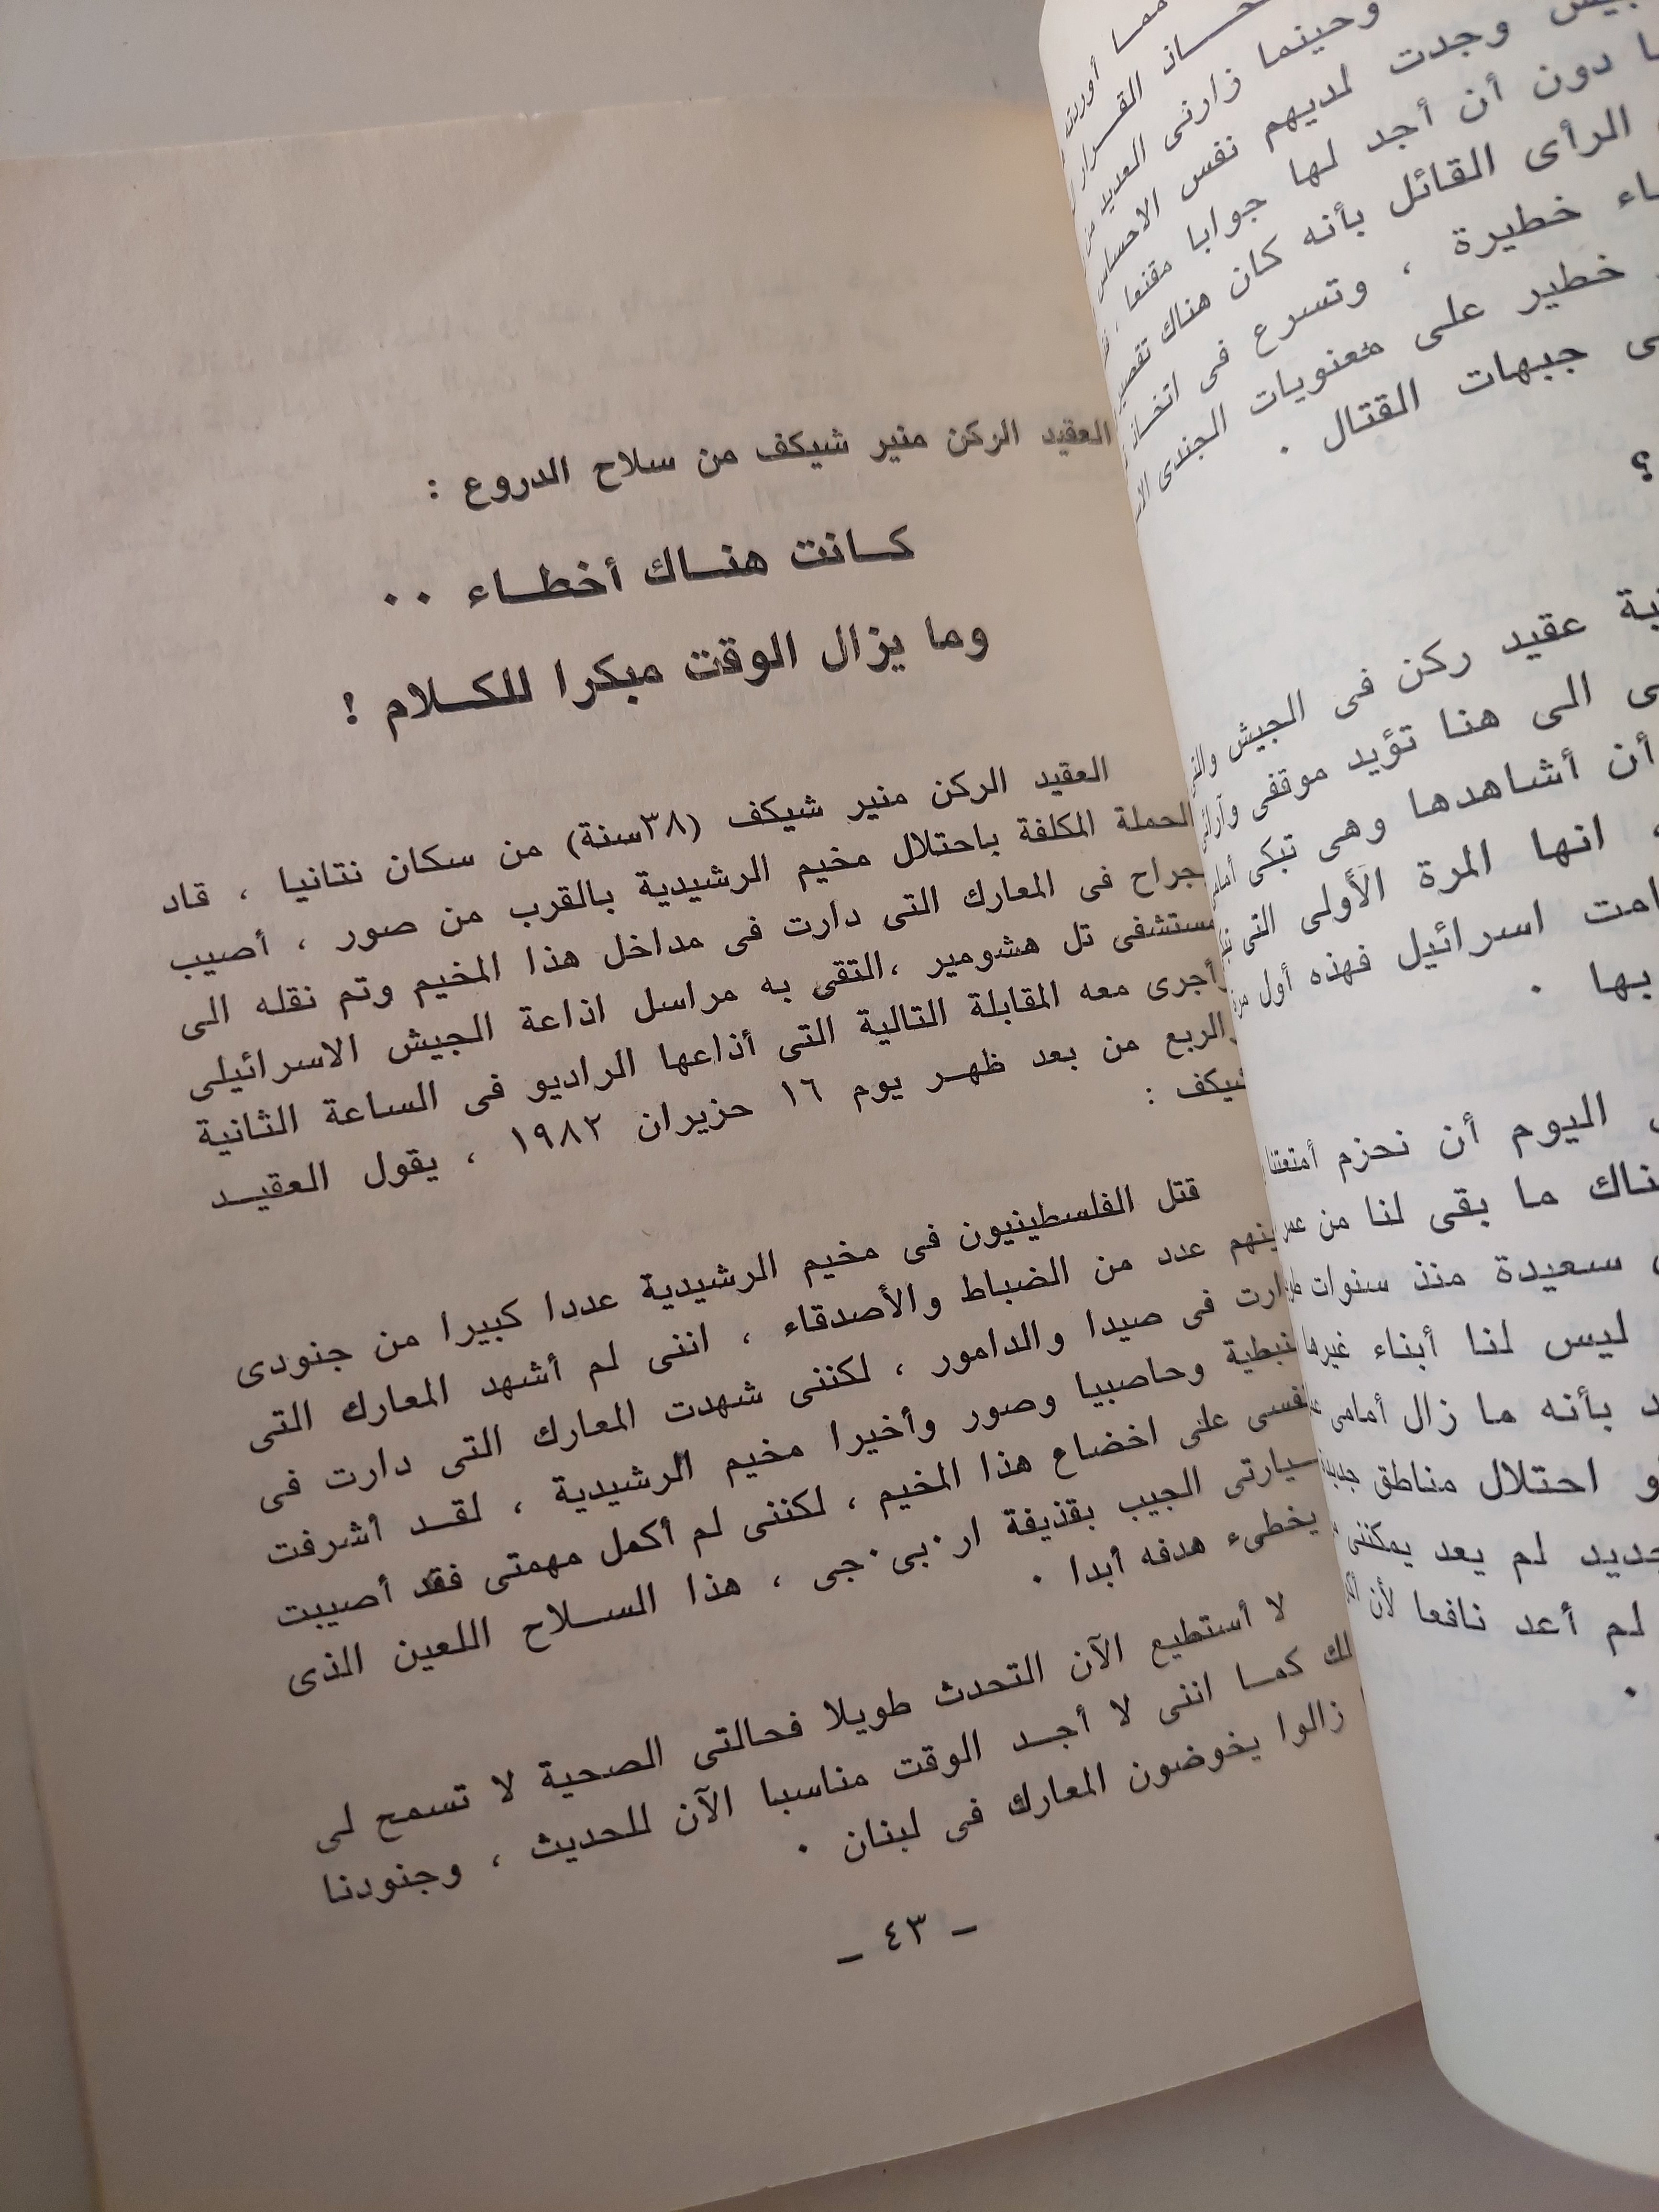 العقيد الركن منير شيكف من سلاح الدروع :
كانت هناك أخطاء ٠٠
وما يزال الوقت مبكرا للكلام !
العقيد الركن منير شيكف (٣٨سنة) من سكان نتانيا ، قاد
الحملة المكلفة باحتلال مخيم الرشيدية بالقرب من صور ، أصيب
بجراح فى المعارك التى دارت فى مداخل هذا المخيم وتم نقله الى
مستشفى تل هشومير ،التقى به مراسل اذاعة الجيش الاسرائيلى
وأجرى معه المقابلة التالية التى أذاعها الراديو فى الساعة الثانية
والربع من بعد ظهر يوم ١٦ حزيران ١٩٨٢ ، يقول العقيد
شيكف :
قتل الفلسطينيون فى مخيم الرشيدية عددا كبيرا من جنودى
بينهم عدد من الضباط والأصدقاء ، اننى لم أشهد المعارك التى
دارت فى صيدا والدامور ، لكننى شهدت المعارك التى دارت فى
نبطية وحاصبيا وصور وأخيرا مخيم الرشيدية ، لقد أشرفت
نفسى على اخضاع هذا المخيم ، لكننى لم أكمل مهمتى فقد أصيبت
سيارتى الجيب بقذيفة ار٠بى٠جى ، هذا السلاح اللعين الذى
يخطىء هدفه أبدا ٠
لا أستطيع الآن التحدث طويلا فحالتى الصحية لا تسمح لى
كما اننى لا أجد الوقت مناسبا الآن للحديث ، وجنودنا
زالوا يخوضون المعارك فى لبنان ٠
ـ ٤٣ ـ
مما
القرار
وحينما زارنى العديد من
وجدت لديهم نفس الاحساس
دون أن أجد لها جوابا مقنعا
الرأى القائل بأنه كان هناك
خطيرة ، وتسرع فى
خطير على معنويات الجندى
جبهات القتال ٠
؟
عقيد ركن فى الجيش
الى هنا تؤيد موقفى
أن أشاهدها وهى تبكى
انها المرة الأولى التى
اسرائيل فهذه أول
بها ٠
اليوم أن نحزم أمتعتنا
ما بقى لنا من
سعيدة منذ سنوات
ليس لنا أبناء غيرها
بأنه ما زال أمامى
احتلال مناطق
لم يعد يمكننى
لم أعد نافعا لأن